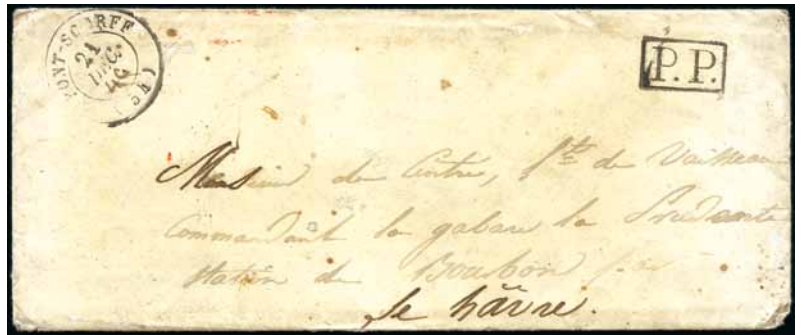 PONT-SCORFF
21
DEC.
46
(54)
P.P.
Monsieur de Cintré, Lt de Vaisseau
Commandant la gabare la Prudente
station de Bourbon par
le hâvre.